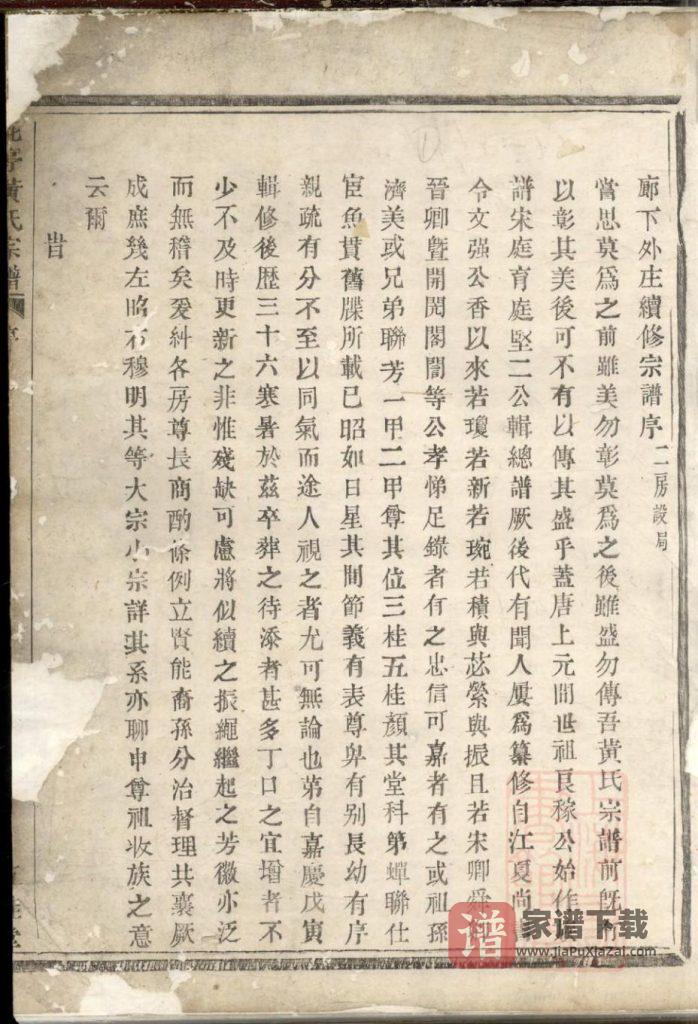 廊下外庄續修宗譜序 二房設局
嘗思莫爲之前雖美勿彰莫爲之後雖盛勿傳吾黃氏宗譜前旣有
以彰其美後可不有以傳其盛乎蓋唐上元間世祖長稼公始作
譜宋庭育庭堅二公輯總譜厥後代有聞人屢爲纂修自江夏尚
令文强公香以來若瓊若新若琬若積與苾縈與振且若宋卿舜
晉卿曁開閱閣誾等公孝悌足錄者有之忠信可嘉者有之或祖孫
濟美或兄弟聯芳一甲二甲尊其位三桂五桂顏其堂科第蟬聯仕
宦魚貫舊牒所載已昭如日星其間節義有表尊卑有别長幼有序
親疏有分不至以同氣而途人視之者尤可無論也第自嘉慶戊寅
輯修後歷三十六寒暑於茲卒葬之待添者甚多丁口之宜增者不
少不及時更新之非惟殘缺可慮將似續之振繩繼起之芳徽亦泛
而無稽矣爰糾各房尊長商酌條例立賢能裔孫分治督理共襄厥
成庶幾左昭右穆明其等大宗小宗詳其系亦聊申尊祖收族之意
云爾
旹
亭黃氏宗譜
序
堂
譜 家谱下载
www.jiaPuXiaZai.com